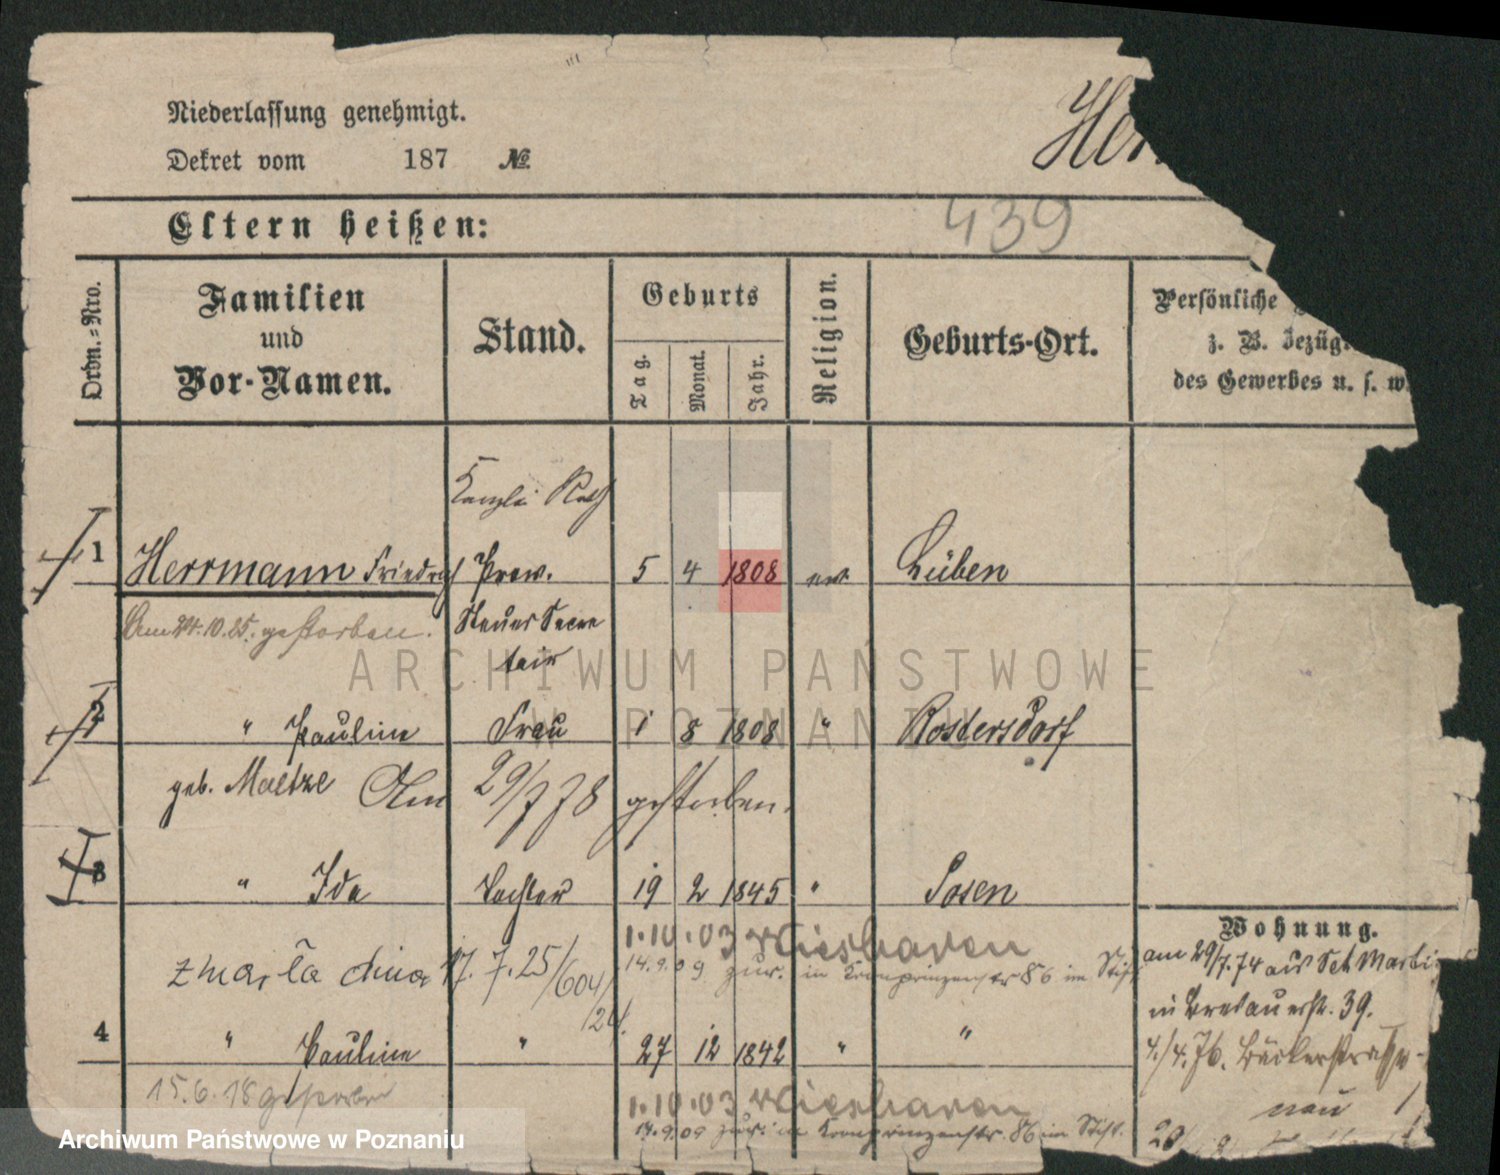 Niederlassung genehmigt.
Dekret vom 187 №
Her
439
Eltern heißen:
Ordn.-Nro.
Familien
und
Vor-Namen.
Stand.
Geburts
Tag.
Monat.
Jahr.
Religion.
Geburts-Ort.
Persönliche
z. B. bezüg.
des Gewerbes u. s. w.
Kanzlei Rath
1 Herrmann Friedrich Prov. 5 4 1808 ev. Lüben
Am 24.10.85. gestorben. Steuer Secre
tair
ARCHIWUM PAŃSTWOWE
W POZNANIU
2 " Pauline Frau 1 8 1808 " Rostersdorf
geb. Maetze Am 29/7 78 gestorben.
3 " Ida Tochter 19 2 1845 " Posen
Wohnung.
1.10.03 Wiesbaden
zmarła dnia 17.7.25/604/
24.
14.9.09 zur. in Kronprinzenstr 86 im Stift
am 29/7.74 aus Sct Martin
in Breslauerstr. 39.
4 " Pauline " 27 12 1842 " "
4./4.76. Bäckerstrasse
15.6.18 gestorben
1.10.03 Wiesbaden
neu
14.9.09 zur. in Kronprinzenstr. 86 im Stift.
Archiwum Państwowe w Poznaniu